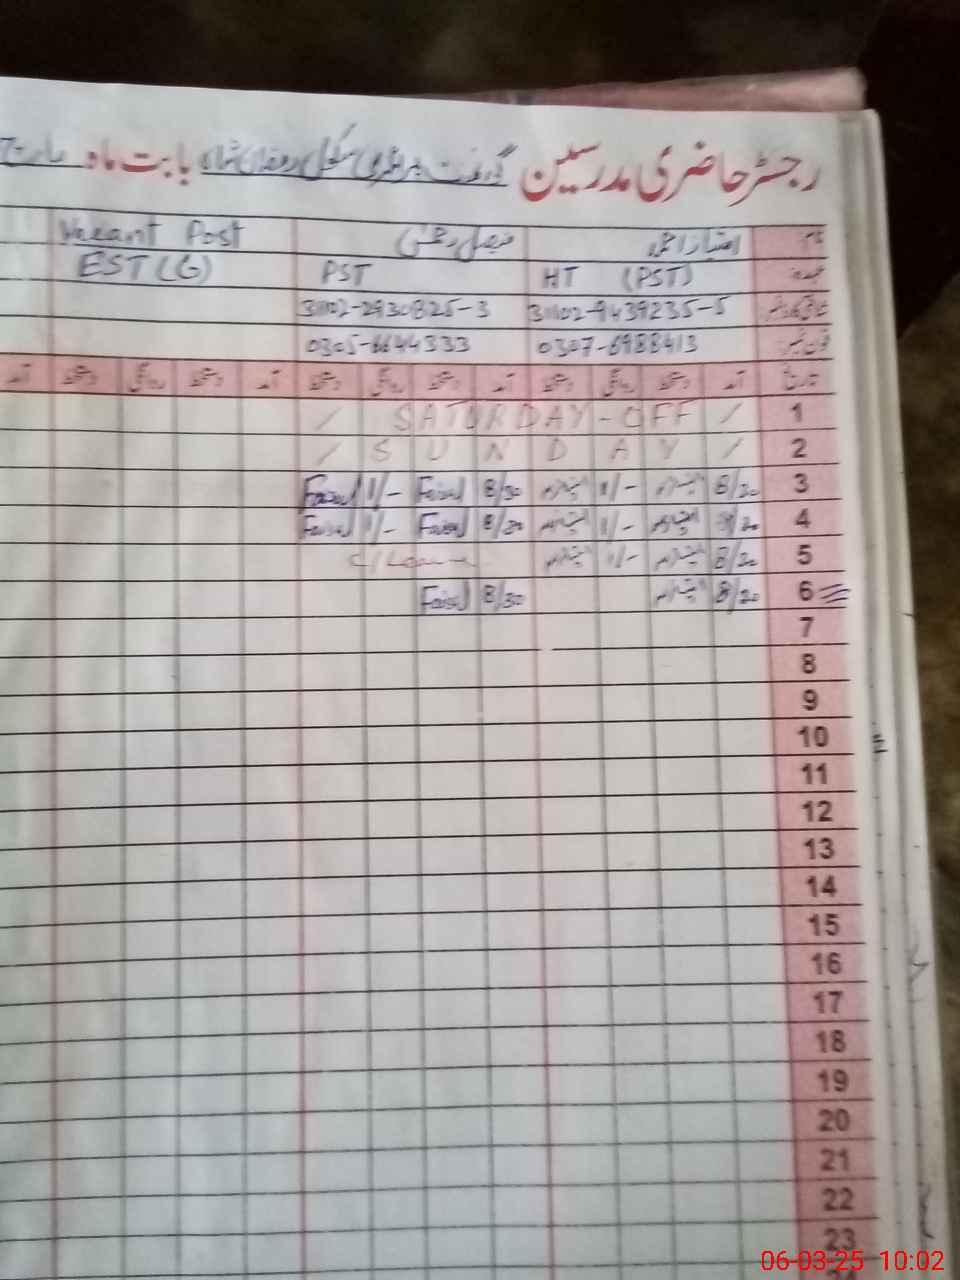 رجسٹر حاضری مدرسین گورنمنٹ پرائمری سکول رمضان شاہ بابت ماہ مارچ
نام امتیاز احمد فیصل رحمٰن Vacant Post
عہدہ HT (PST) PST EST (G)
شناختی کارڈ نمبر 31102-9439235-5 31102-2930825-3
فون نمبر 0307-6988413 0305-6644333
تاریخ آمد دستخط روانگی دستخط آمد دستخط روانگی دستخط آمد دستخط روانگی دستخط آمد
1 / SATURDAY-OFF /
2 / SUNDAY /
3 8/30 امتیاز احمد 1/- امتیاز احمد 8/30 Faisal 1/- Faisal
4 8/30 امتیاز احمد 1/- امتیاز احمد 8/30 Faisal 1/- Faisal
5 8/30 امتیاز احمد 1/- امتیاز احمد C/Leave
6 8/30 امتیاز احمد 8/30 Faisal
7
8
9
10
11
12
13
14
15
16
17
18
19
20
21
22
23
06-03-25 10:02